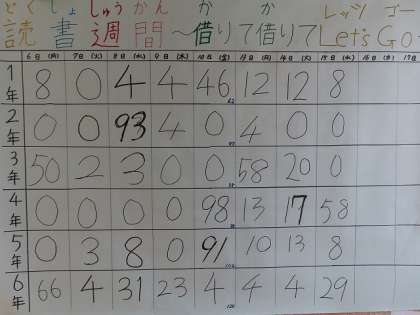 どくしょしゅうかん かかレッツゴー
読書週間～借りて借りてLet's Go
6日(月) 7日(火) 8日(水) 9日(木) 10日(金) 13日(月) 14日(火) 15日(水) 16日(木) 17日
1年 8 0 4 4 46 12 12 8
2年 0 0 93 4 0 4 0 0
3年 50 2 3 0 0 58 20 0
4年 0 0 0 0 98 13 17 58
5年 0 3 8 0 91 10 13 8
6年 66 4 31 23 4 4 4 29